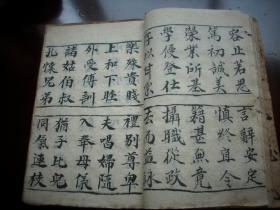 容止若思 言辭安定
篤初誠美 慎終宜令
榮業所基 籍甚無竟
學優登仕 攝職從政
存以甘棠 去而益詠
樂殊貴賤 禮別尊卑
上和下睦 夫唱婦隨
外受傅訓 入奉母儀
諸姑伯叔 猶子比兒
孔懷兄弟 同氣連枝